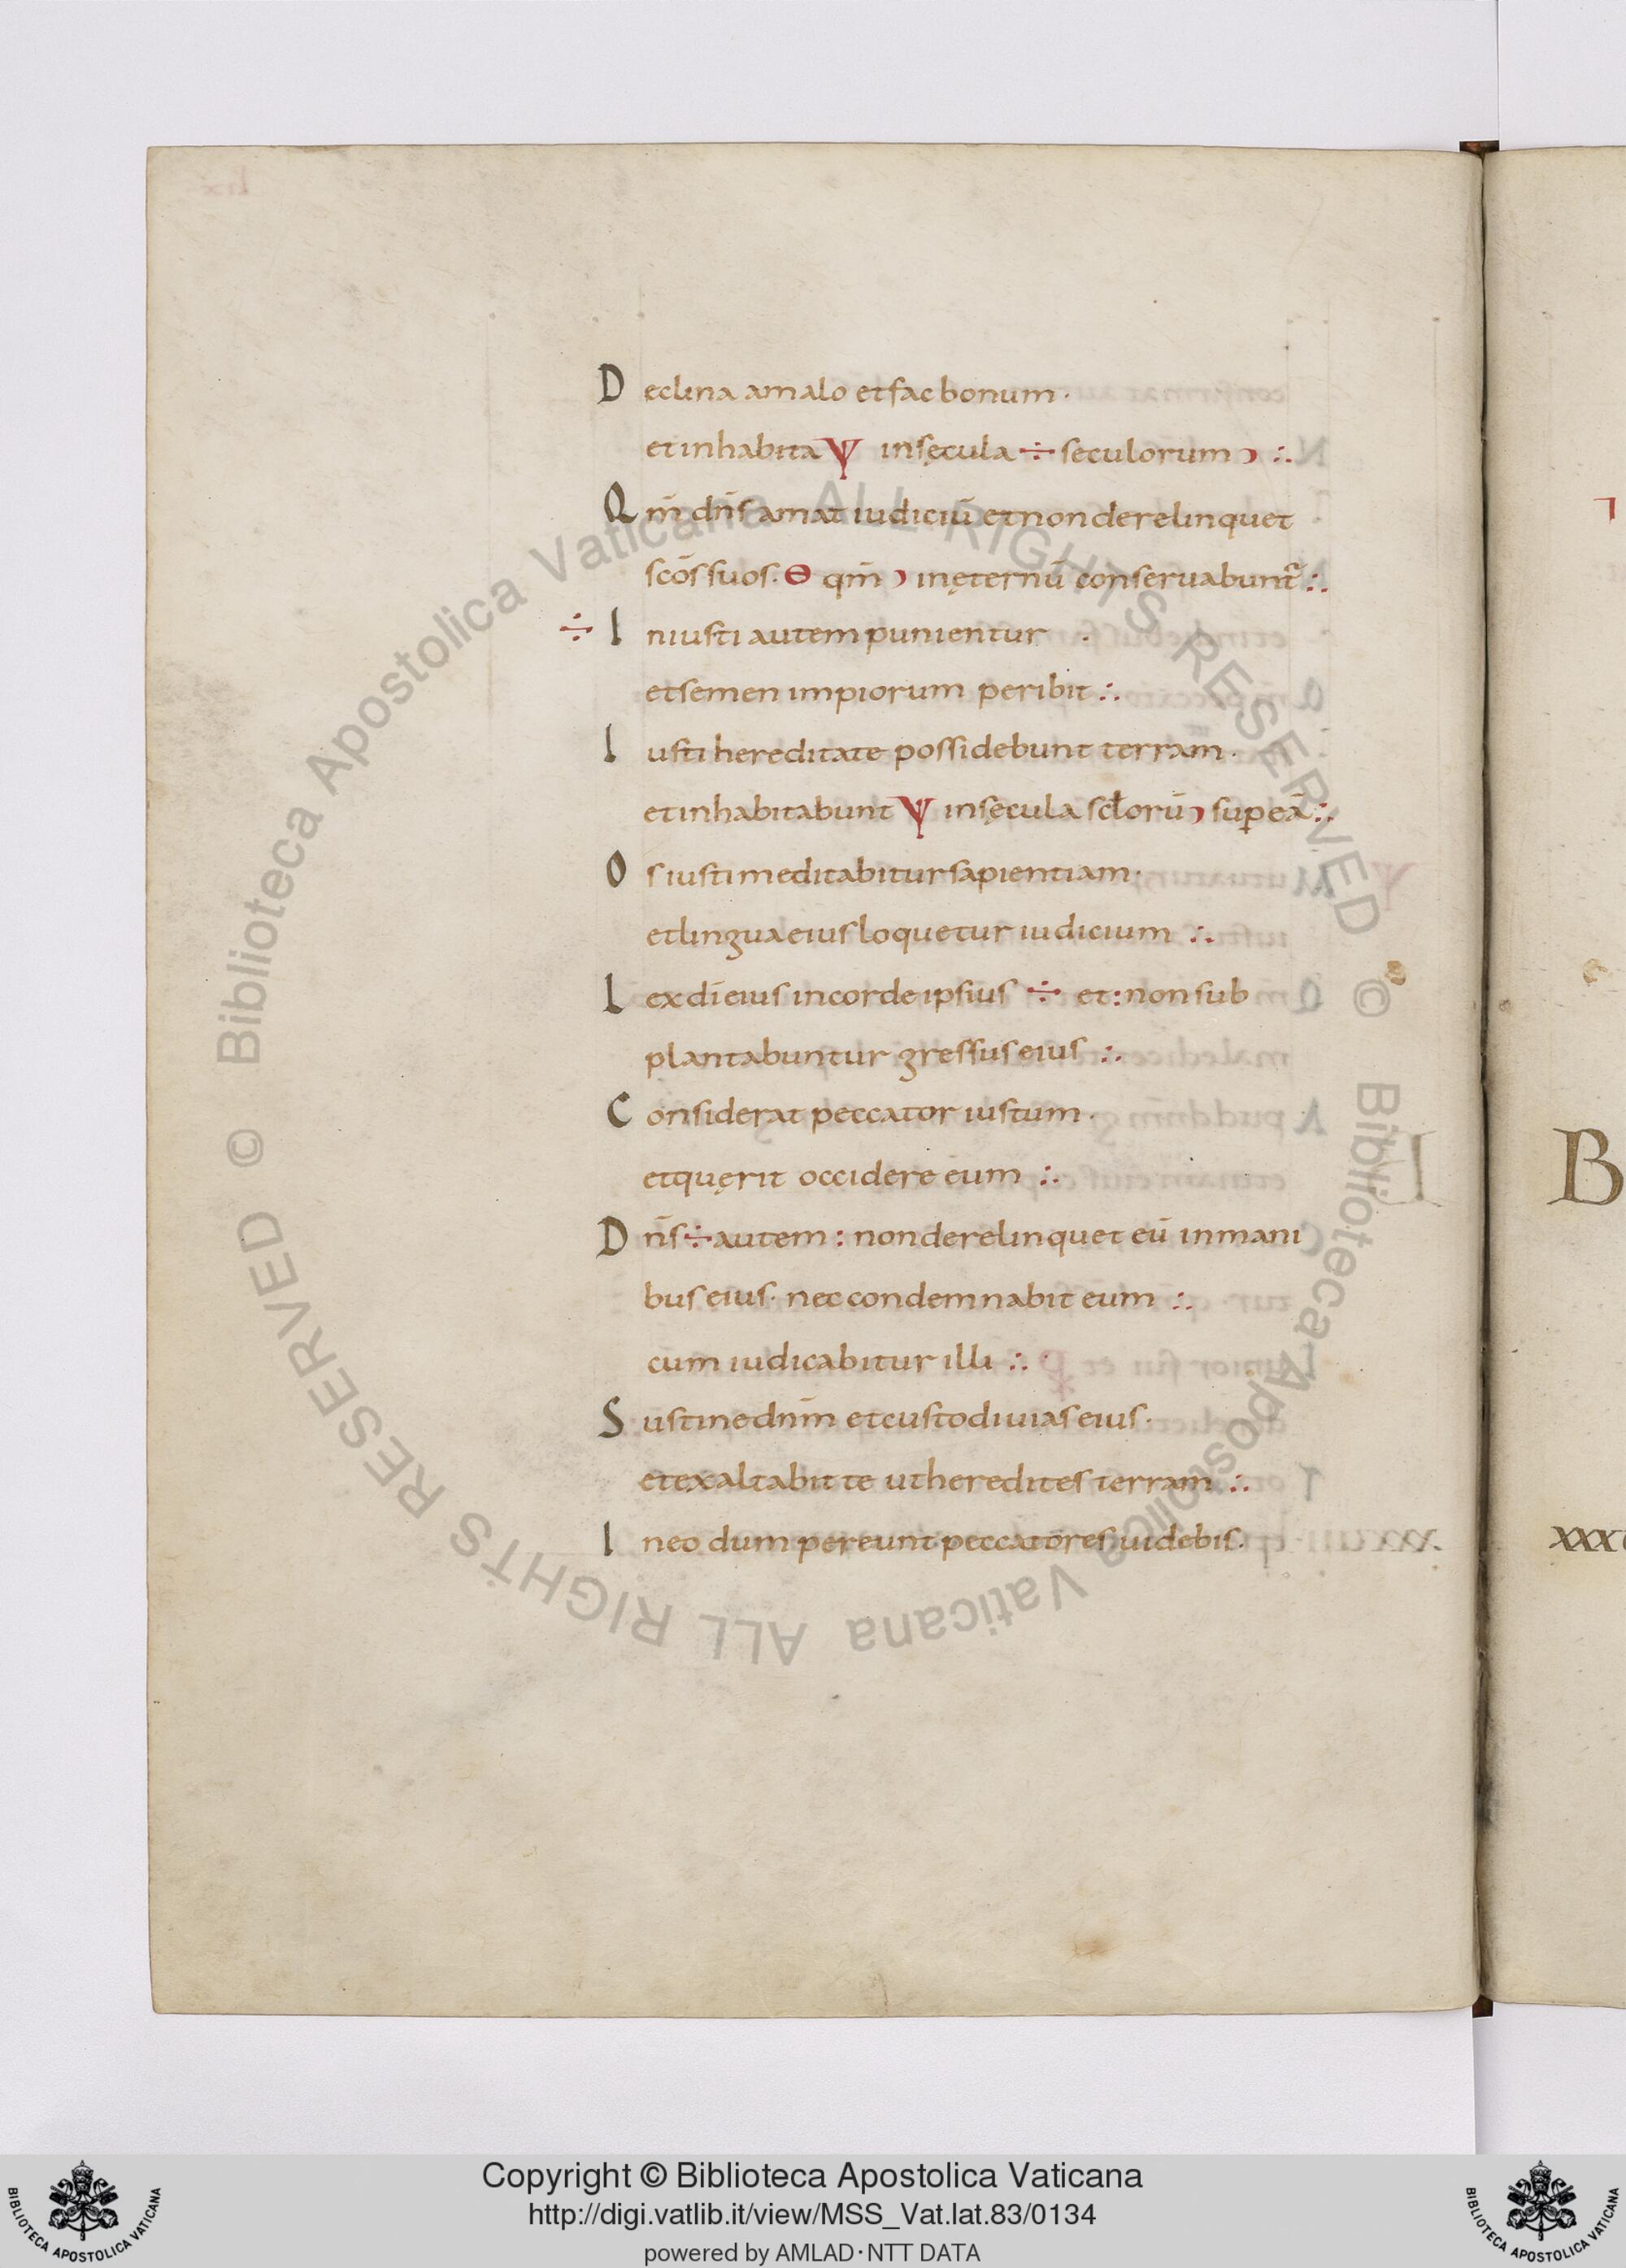 Declina amalo etfac bonum·
etinhabita Ѱ insęcula ÷ seculorum ͽ ∴
Qm̄ dn̄s amat iudiciū etnonderelinquet
scōs suos· Θ qm̄ ͽ inęternū conseruabunt̃ ∴
÷ Iniusti autem punientur ·
etsemen impiorum peribit ∴
Iusti hereditate possidebunt terram·
etinhabitabunt Ѱ insęcula scłorū ͽ sup eā ∴
Os iusti meditabitur sapientiam·
etlingua eius loquetur iudicium ∴
Lex dī eius in corde ipsius ÷ et: non sub
plantabuntur gressus eius ∴
Considerat peccator iustum·
etquęrit occidere eum ∴
Dn̄s ÷ autem : non derelinquet eū inmani
bus eius· nec condemnabit eum ∴
cum iudicabitur illi ∴
Sustine dnm̄ etcustodi uias eius·
etexaltabit te uthereditesterram ∴
Ineo dum pereunt peccatores uidebis·
B
xxx
© Biblioteca Apostolica Vaticana ALL RIGHTS RESERVED © Biblioteca Apostolica Vaticana ALL RIGHTS RESERVED
Copyright © Biblioteca Apostolica Vaticana
http://digi.vatlib.it/view/MSS_Vat.lat.83/0134
powered by AMLAD·NTT DATA
BIBLIOTECA APOSTOLICA VATICANA
BIBLIOTECA APOSTOLICA VATICANA